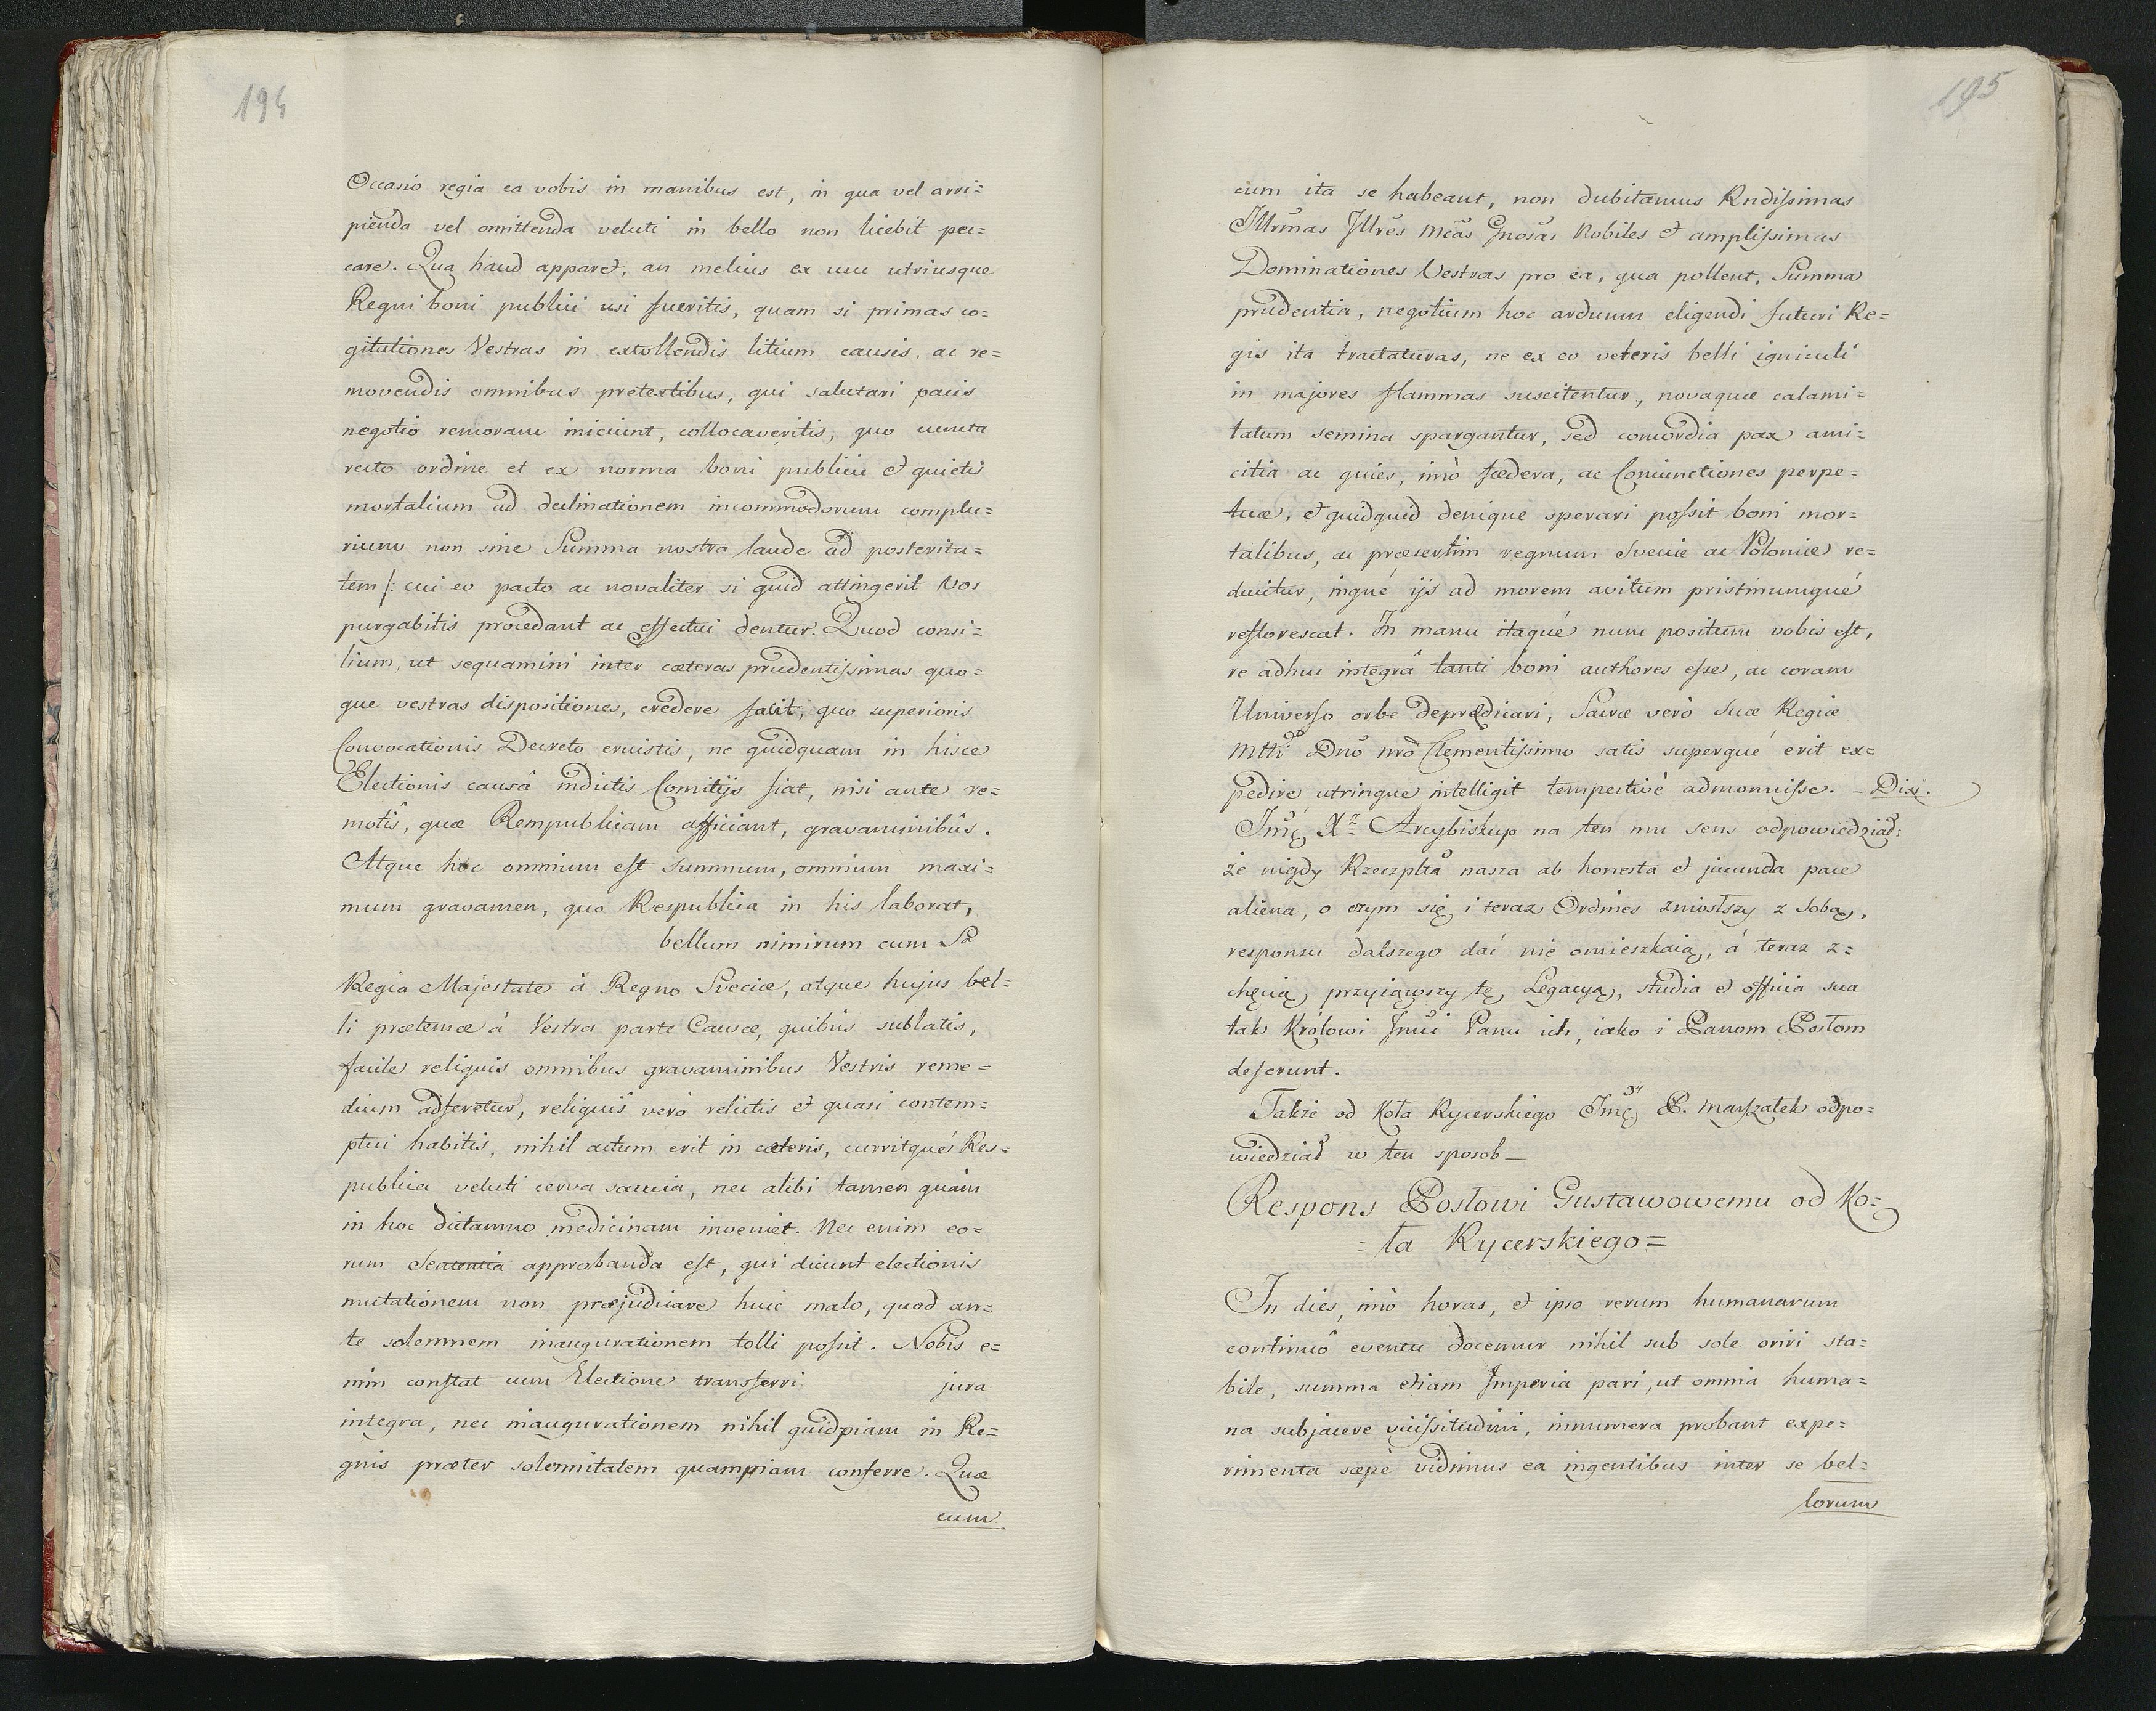 194
Occasio regia ea vobis in manibus est, in qua vel arri=
pienda vel omittenda veluti in bello non licebit pec=
care. Qua haud apparet, an melius ex usu utriusque
Regni boni publici usi fueritis, quam si primas co=
gitationes Vestras in extollendis litium causis, ac re=
movendis omnibus pretextibus, qui salutari pacis
negotio remoram iniciunt, collocaveritis, quo cuncta
recto ordine et ex norma boni publici et quietis
mortalium ad declinationem incommodorum complu=
rium non sine Summa nostra laude ad posterita=
tem /: cui eo pacto ac novaliter si quid attingerit Vos
purgabitis procedant ac effectui dentur. Quod consi=
lium, ut sequamini inter cæteras prudentissimas quo=
que vestras dispositiones, credere facit, quo superioris
Convocationis Decreto cavistis, ne quidquam in hisce
Electionis causâ indictis Comitijs fiat, nisi ante re=
motis, quæ Rempublicam afficiant, gravaminibûs.
Atque hoc omnium est summum, omnium maxi=
mum gravamen, quo Respublica in his laborat,
bellum nimirum cum Sa
Regia Majestate à Regno Sveciæ, atque hujus bel=
li prætensæ à Vestra parte Causæ, quibus sublatis,
facile reliquis omnibus gravaminibus Vestris reme=
dium adferetur, reliquis verò relictis et quasi contem=
ptui habitis, nihil actum erit in cæteris, curritqué Res=
publica veluti cerva saucia, nec alibi tamen quàm
in hoc dictamno medicinam inveniet. Nec enim eo=
rum Sententia approbanda est, qui dicunt electionis
mutationem non præjudicare huic malo, quod an=
te solemnem inaugurationem tolli possit. Nobis e=
nim constat cum Electione transferri jura
integra, nec inaugurationem nihil quidpiam in Re=
gnis præter solemnitatem quampiam conferre. Quæ
cum
195
cum ita se habeant, non dubitamus Rndissimas
Illrm̃as Illrẽs Mcãs Gnosãs Nobiles et amplissimas
Dominationes Vestras pro ea, qua pollent, Summa
prudentia, negotium hoc arduum eligendi futuri Re=
gis ita tractaturas, ne ex eo veteris belli igniculi
in majores flammas suscitentur, novaquæ calami=
tatum semina spargantur, sed concordia pax ami=
citia ac quies, imò fædera, ac Coniunctiones perpe=
tuæ, et quidquid denique sperari possit boni mor=
talibus, ac præsertim regnum Sveciæ ac Poloniæ re=
ducitur, inqué ijs ad morem avitum pristinumqué
reflorescat. In manu itaqué nunc positum vobis est,
re adhuc integrâ tanti boni authores esse, ac coram
Universo orbe deprædicari, Sacræ verò Suæ Regiæ
Mtti Dnõ nrõ Clementissimo satis superqué erit ex=
pedire utrinque intelligit tempestivè admonuisse. – Dixi.
Jm̃ę Xz Arcybiskup na ten mu sens odpowiedział:
że nigdy Rzeczplta nasza ab honesta et jucunda pace
aliena, o czym się i teraz Ordines zniosłszy z Sobą,
responsu dalszego dać nie omieszkaią, á teraz z=
chęcią przyiąwszy tę Legacyą, studia et officia sua
tak Królowi Jmći Panu ich, iako i Panom Posłom
deferunt.
Także od Koła Rycerskiego Jm̃ę P. Marszałek odpo=
wiedział w ten sposob –
Respons Posłowi Gustawowemu od Ko=
=ła Rycerskiego=
In dies, imò horas, et ipso rerum humanarum
continuô eventu docemur nihil sub sole oriri sta=
bile, summa etiam Imperia pari, ut omnia huma=
na subjacere vicissitudini, innumera probant expe=
rimenta sæpè vidimus ea ingentibus inter se bel=
lorum